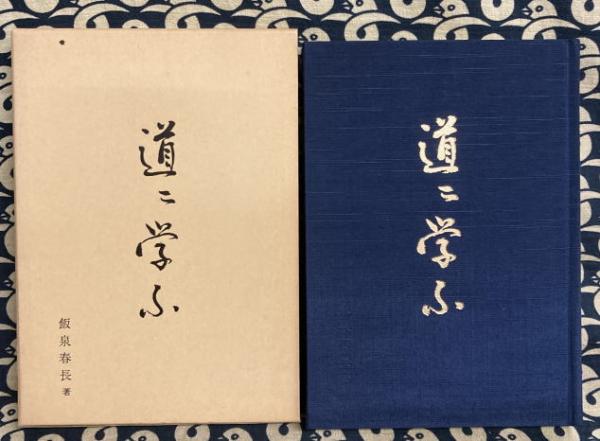 道ニ学ふ
飯泉春長 著
道ニ学ふ